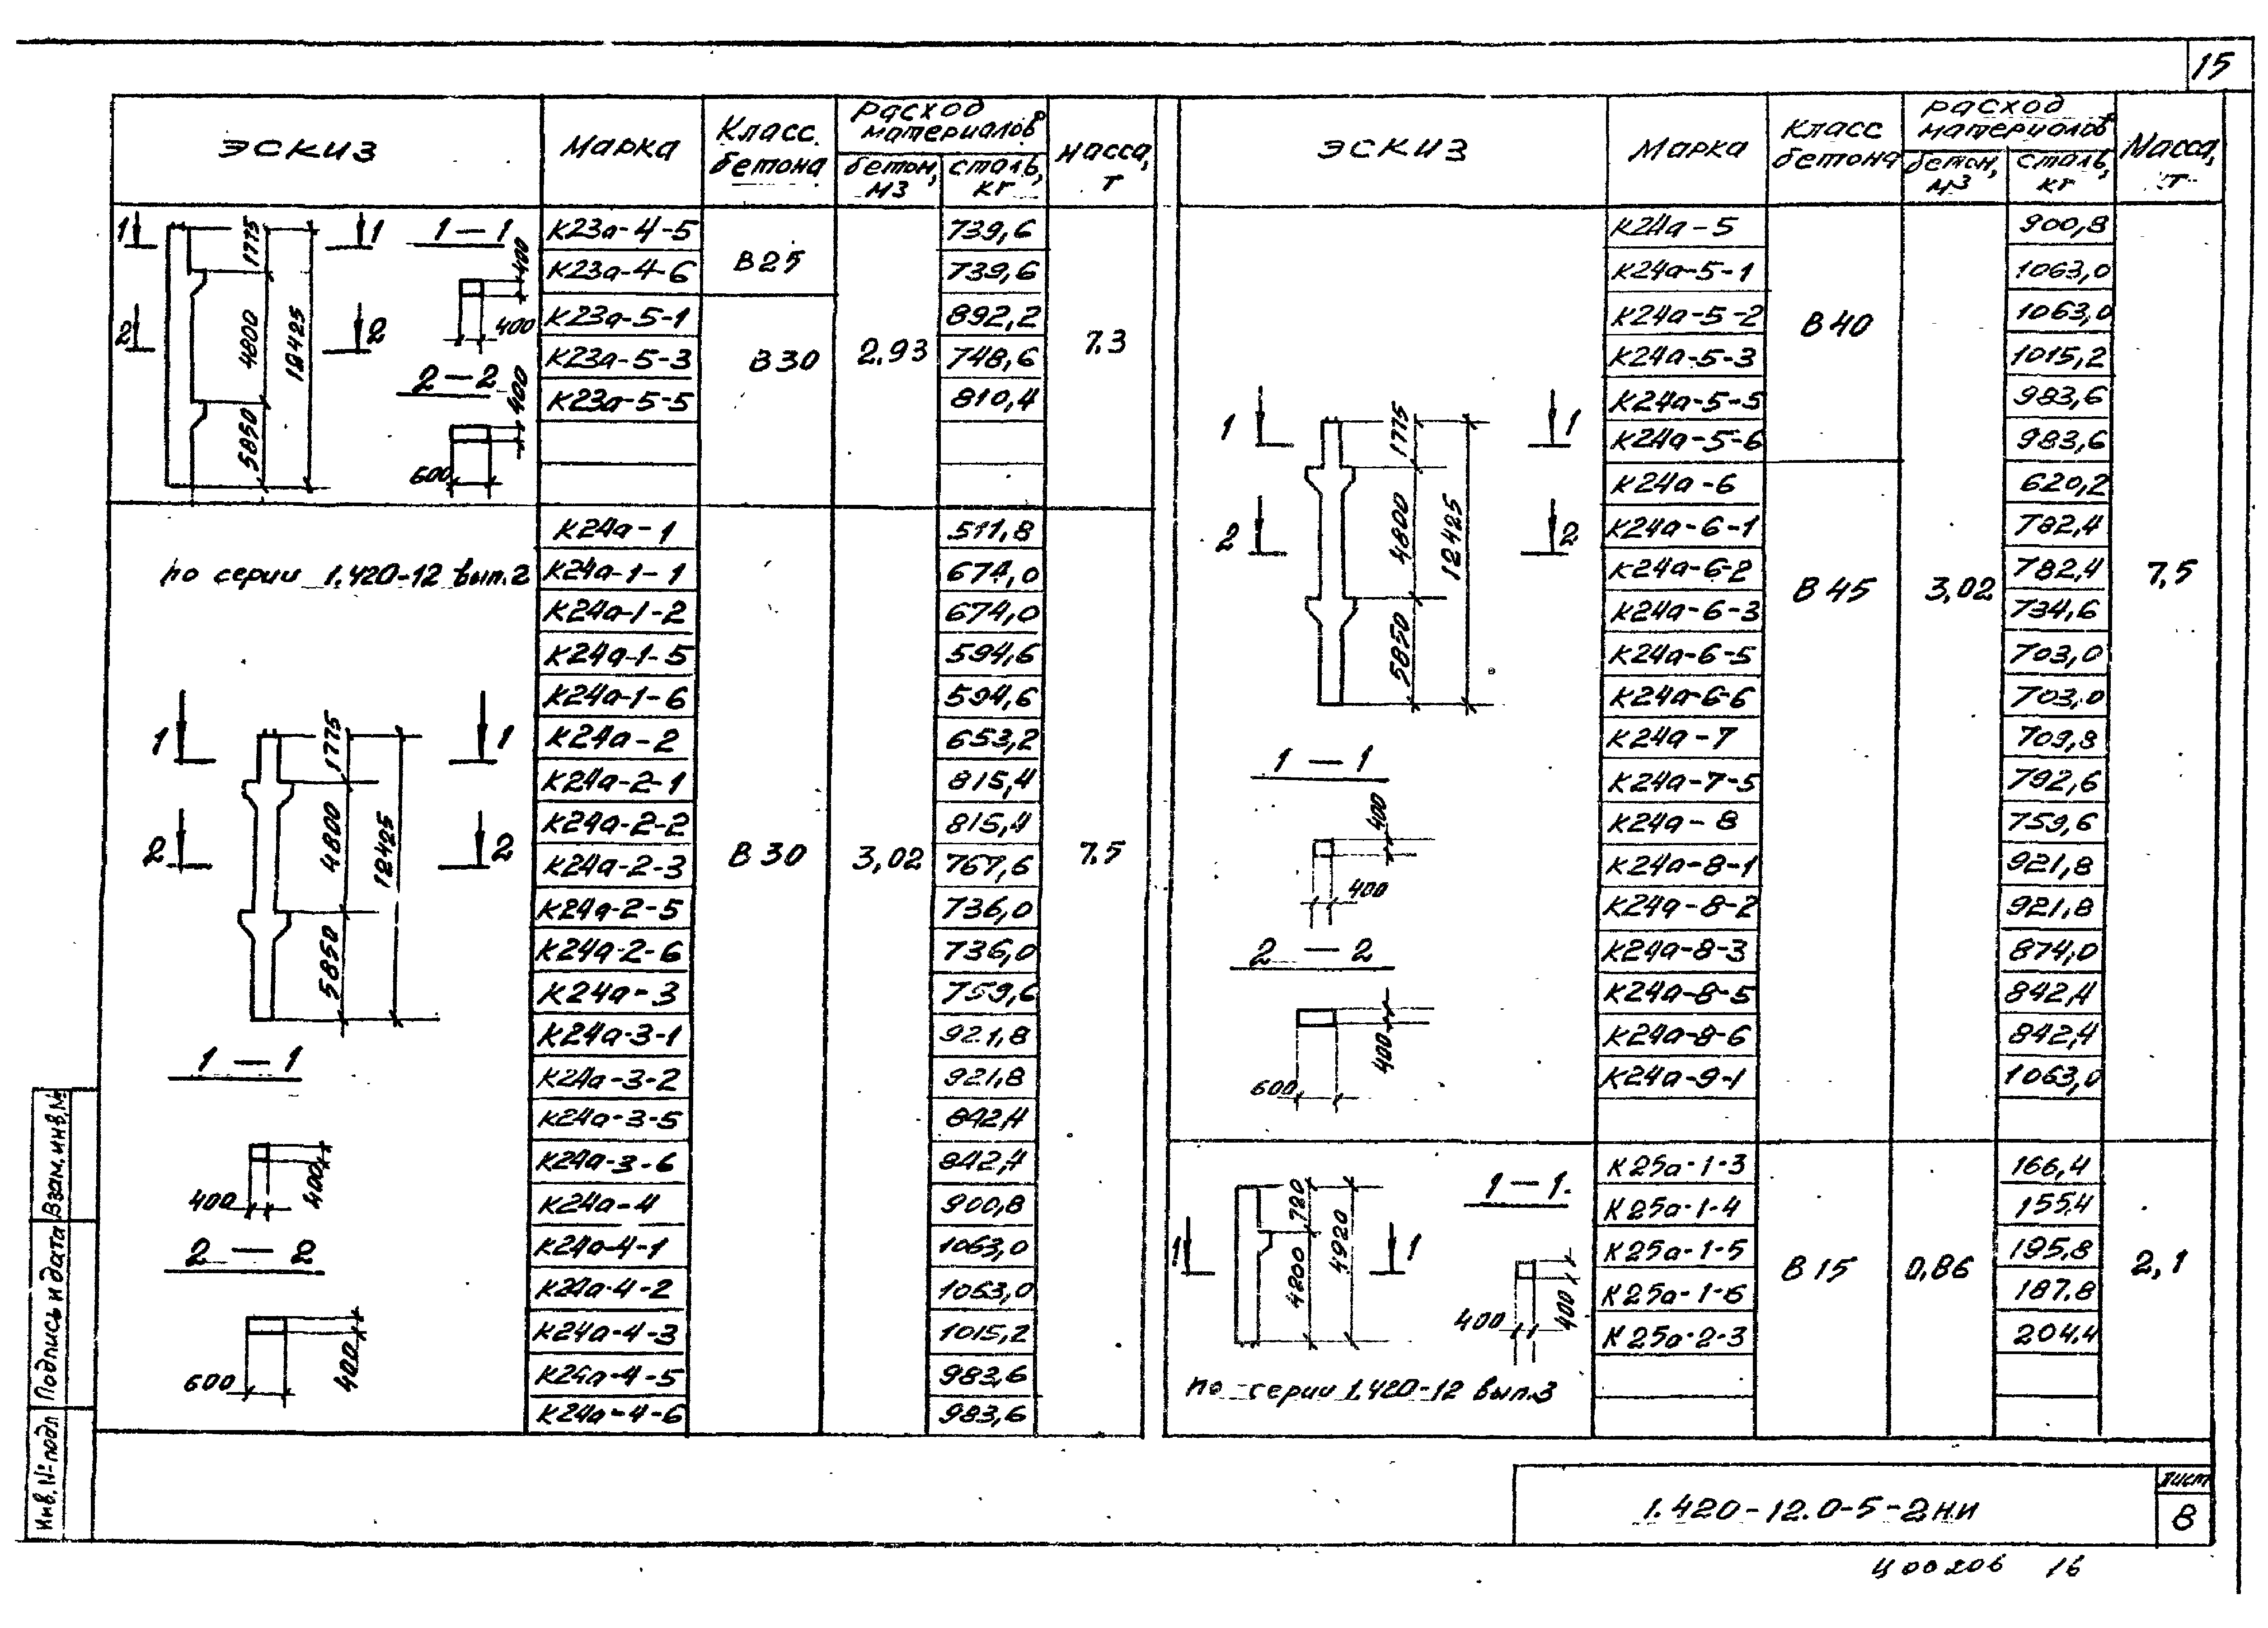 15
ЭСКИЗ Марка Класс бетона Расход материалов бетон, м3 сталь, кг Масса, т
1 1 1775 4800 5850 12425
2 2
1-1 400 400
2-2 400 600
К23а-4-5 В25 2.93 739,6 7.3
К23а-4-6 739,6
К23а-5-1 В30 892,2
К23а-5-3 748,6
К23а-5-5 810,4
по серии 1.420-12 вып.2
1 1 1775 4800 5850 12425
2 2
1-1
400 400
2-2
600 400
К24а-1 В30 3,02 511,8 7.5
К24а-1-1 674,0
К24а-1-2 674,0
К24а-1-5 594,6
К24а-1-6 594,6
К24а-2 653,2
К24а-2-1 815,4
К24а-2-2 815,4
К24а-2-3 767,6
К24а-2-5 736,0
К24а-2-6 736,0
К24а-3 759,6
К24а-3-1 921,8
К24а-3-2 921,8
К24а-3-5 842,4
К24а-3-6 842,4
К24а-4 900,8
К24а-4-1 1063,0
К24а-4-2 1063,0
К24а-4-3 1015,2
К24а-4-5 983,6
К24а-4-6 983,6
ЭСКИЗ Марка Класс бетона Расход материалов бетон, м3 сталь, кг Масса, т
1 1 1775 4800 5850 12425
2 2
1-1
400
400
2-2
400
600
К24а-5 В40 3,02 900,8 7,5
К24а-5-1 1063,0
К24а-5-2 1063,0
К24а-5-3 1015,2
К24а-5-5 983,6
К24а-5-6 983,6
К24а-6 В45 620,2
К24а-6-1 782,4
К24а-6-2 782,4
К24а-6-3 734,6
К24а-6-5 703,0
К24а-6-6 703,0
К24а-7 709,8
К24а-7-5 792,6
К24а-8 759,6
К24а-8-1 921,8
К24а-8-2 921,8
К24а-8-3 874,0
К24а-8-5 842,4
К24а-8-6 842,4
К24а-9-1 1063,0
1 1 780 4200 4920
1-1.
400 400
по серии 1.420-12 вып.3
К25а-1-3 В15 0.86 166,4 2,1
К25а-1-4 155.4
К25а-1-5 195,8
К25а-1-6 187.8
К25а-2-3 204.4
Взам. инв.№
Подпись и дата
Инв.№ подл
1.420-12.0-5-2НИ
Лист
8
Ц00206 16